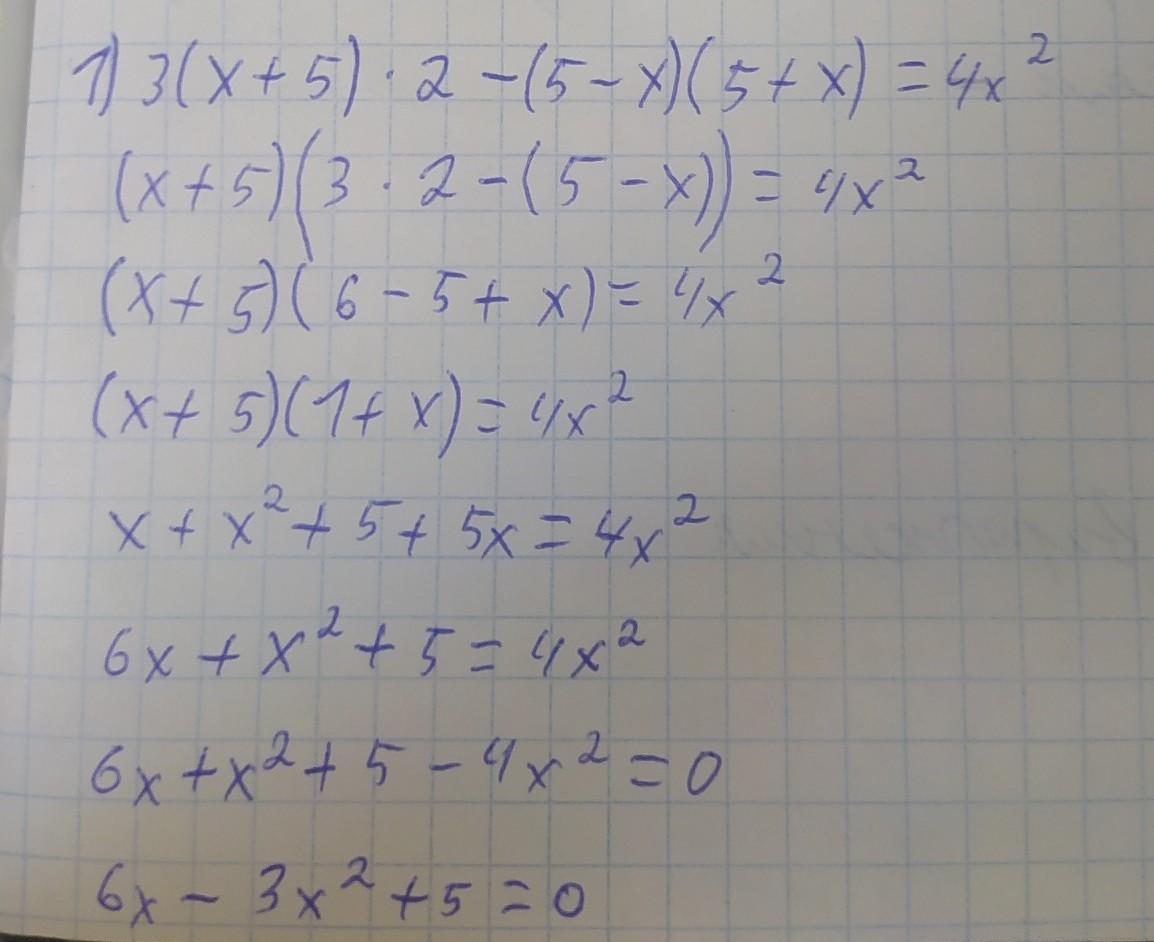 1) 3(x+5) · 2 - (5 - x)(5 + x) = 4x²
(x+5)(3 · 2 - (5 - x)) = 4x²
(x+5)(6 - 5 + x) = 4x²
(x+5)(1 + x) = 4x²
x + x² + 5 + 5x = 4x²
6x + x² + 5 = 4x²
6x + x² + 5 - 4x² = 0
6x - 3x² + 5 = 0